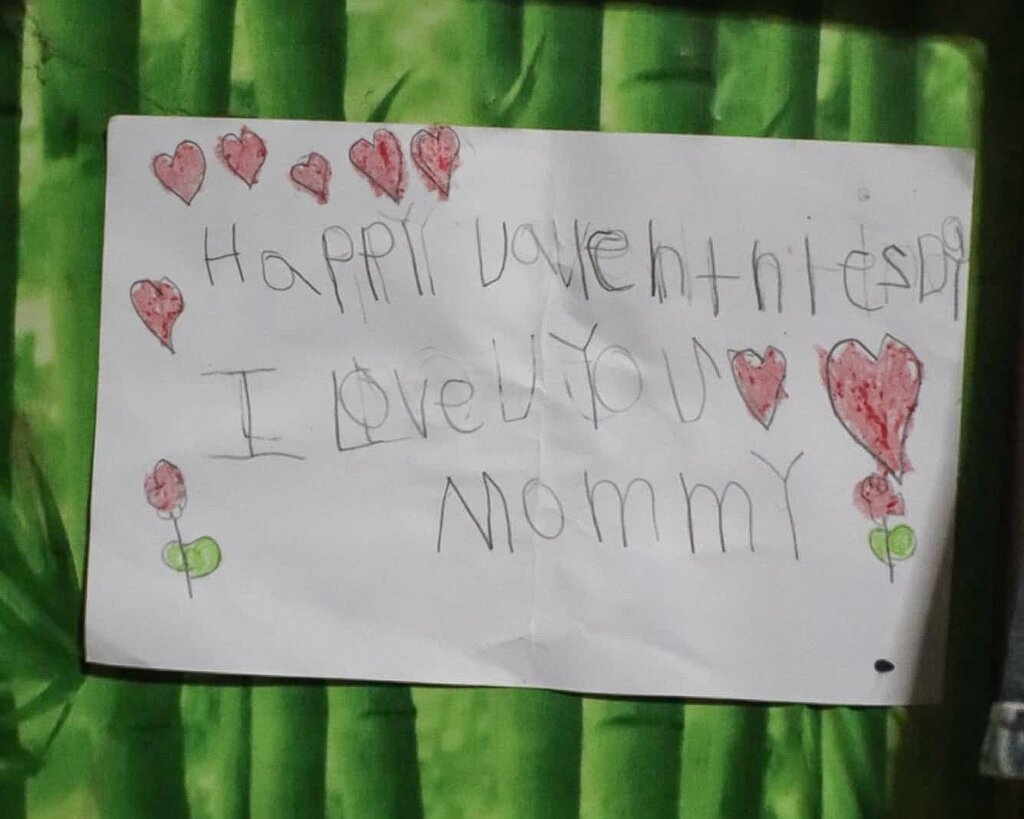 HaPPY valentniesDay
I LoveU YoU
MommY